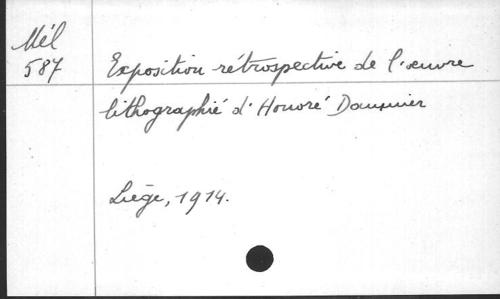 Mél
587
Exposition rétrospective de l'œuvre
lithographié d'Honoré Daumier
Liège, 1914.